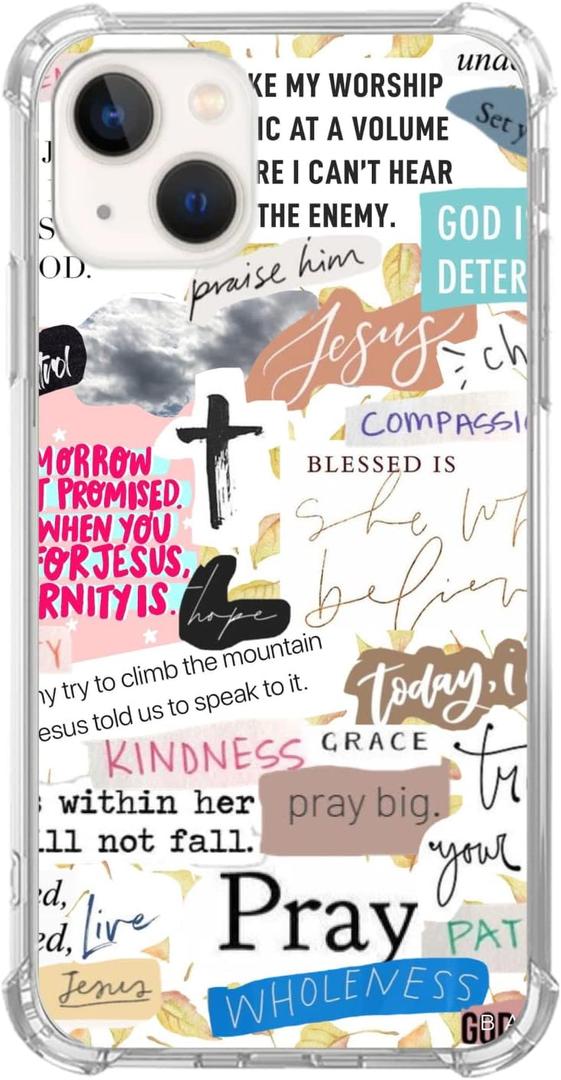 KE MY WORSHIP
IC AT A VOLUME
RE I CAN'T HEAR
THE ENEMY.
Set y
J
S
OD.
GOD I
DETER
praise him
Jesus
trol
ch
COMPASSI
MORROW
T PROMISED.
WHEN YOU
FOR JESUS,
RNITY IS.
BLESSED IS
she wh
believ
hope
TY
hy try to climb the mountain
esus told us to speak to it.
today, i
KINDNESS
GRACE
tr
your
s within her
ill not fall.
pray big.
ed,
ed,
Live
Pray
PAT
Jesus
WHOLENESS
GOD